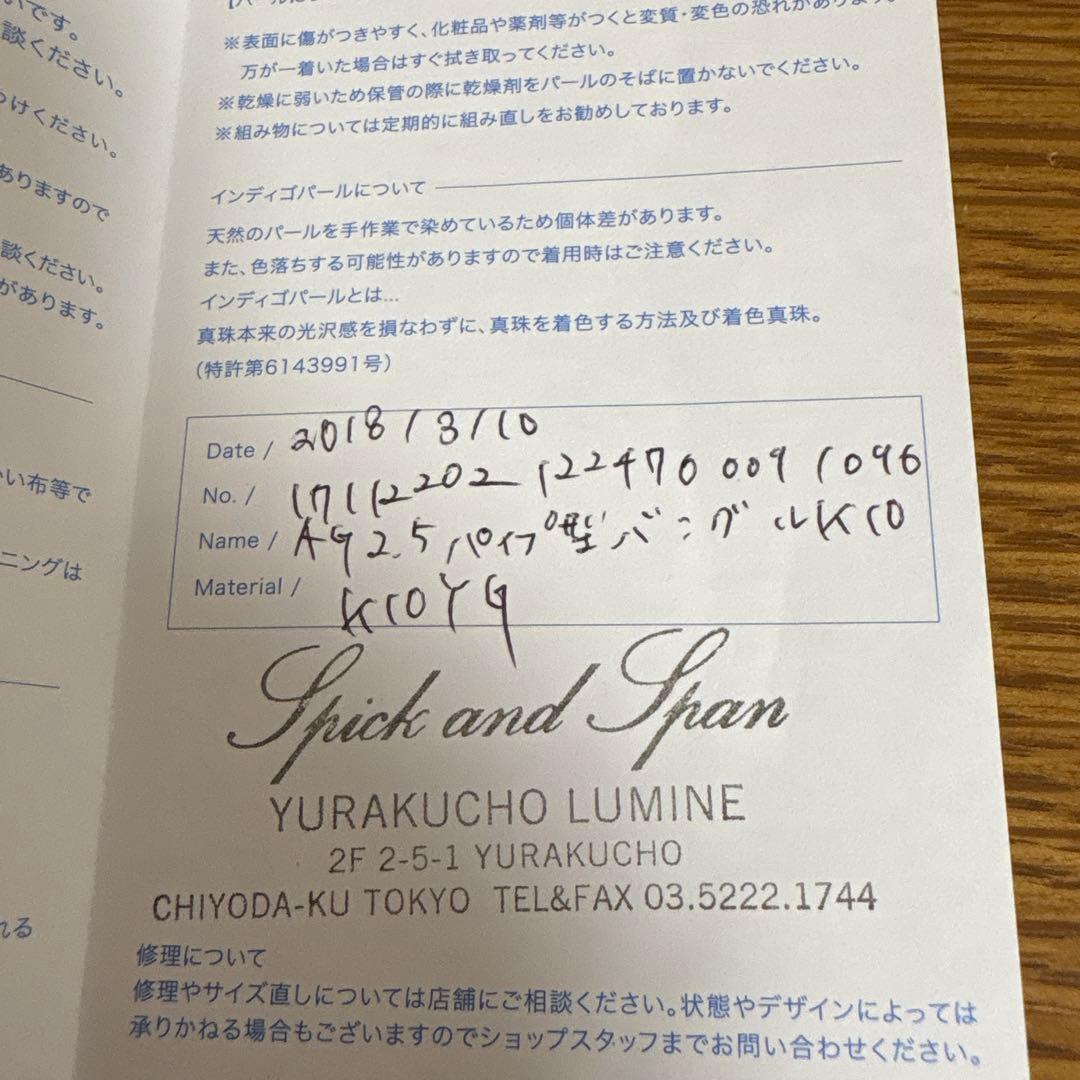 いです。
談ください。
つけください。
ありますので
談ください。
があります。
い布等で
ニングは
れる
※表面に傷がつきやすく、化粧品や薬剤等がつくと変質・変色の恐れがあります。
万が一着いた場合はすぐ拭き取ってください。
※乾燥に弱いため保管の際に乾燥剤をパールのそばに置かないでください。
※組み物については定期的に組み直しをお勧めしております。
インディゴパールについて
天然のパールを手作業で染めているため個体差があります。
また、色落ちする可能性がありますので着用時はご注意ください。
インディゴパールとは...
真珠本来の光沢感を損なわずに、真珠を着色する方法及び着色真珠。
(特許第6143991号)
Date / 2018/3/10
No. / 17112202122470 009 1096
Name / AG2.5パイプ型バングルK10
Material / K10YG
Spick and Span
YURAKUCHO LUMINE
2F 2-5-1 YURAKUCHO
CHIYODA-KU TOKYO TEL&FAX 03.5222.1744
修理について
修理やサイズ直しについては店舗にご相談ください。状態やデザインによっては
承りかねる場合もございますのでショップスタッフまでお問い合わせください。